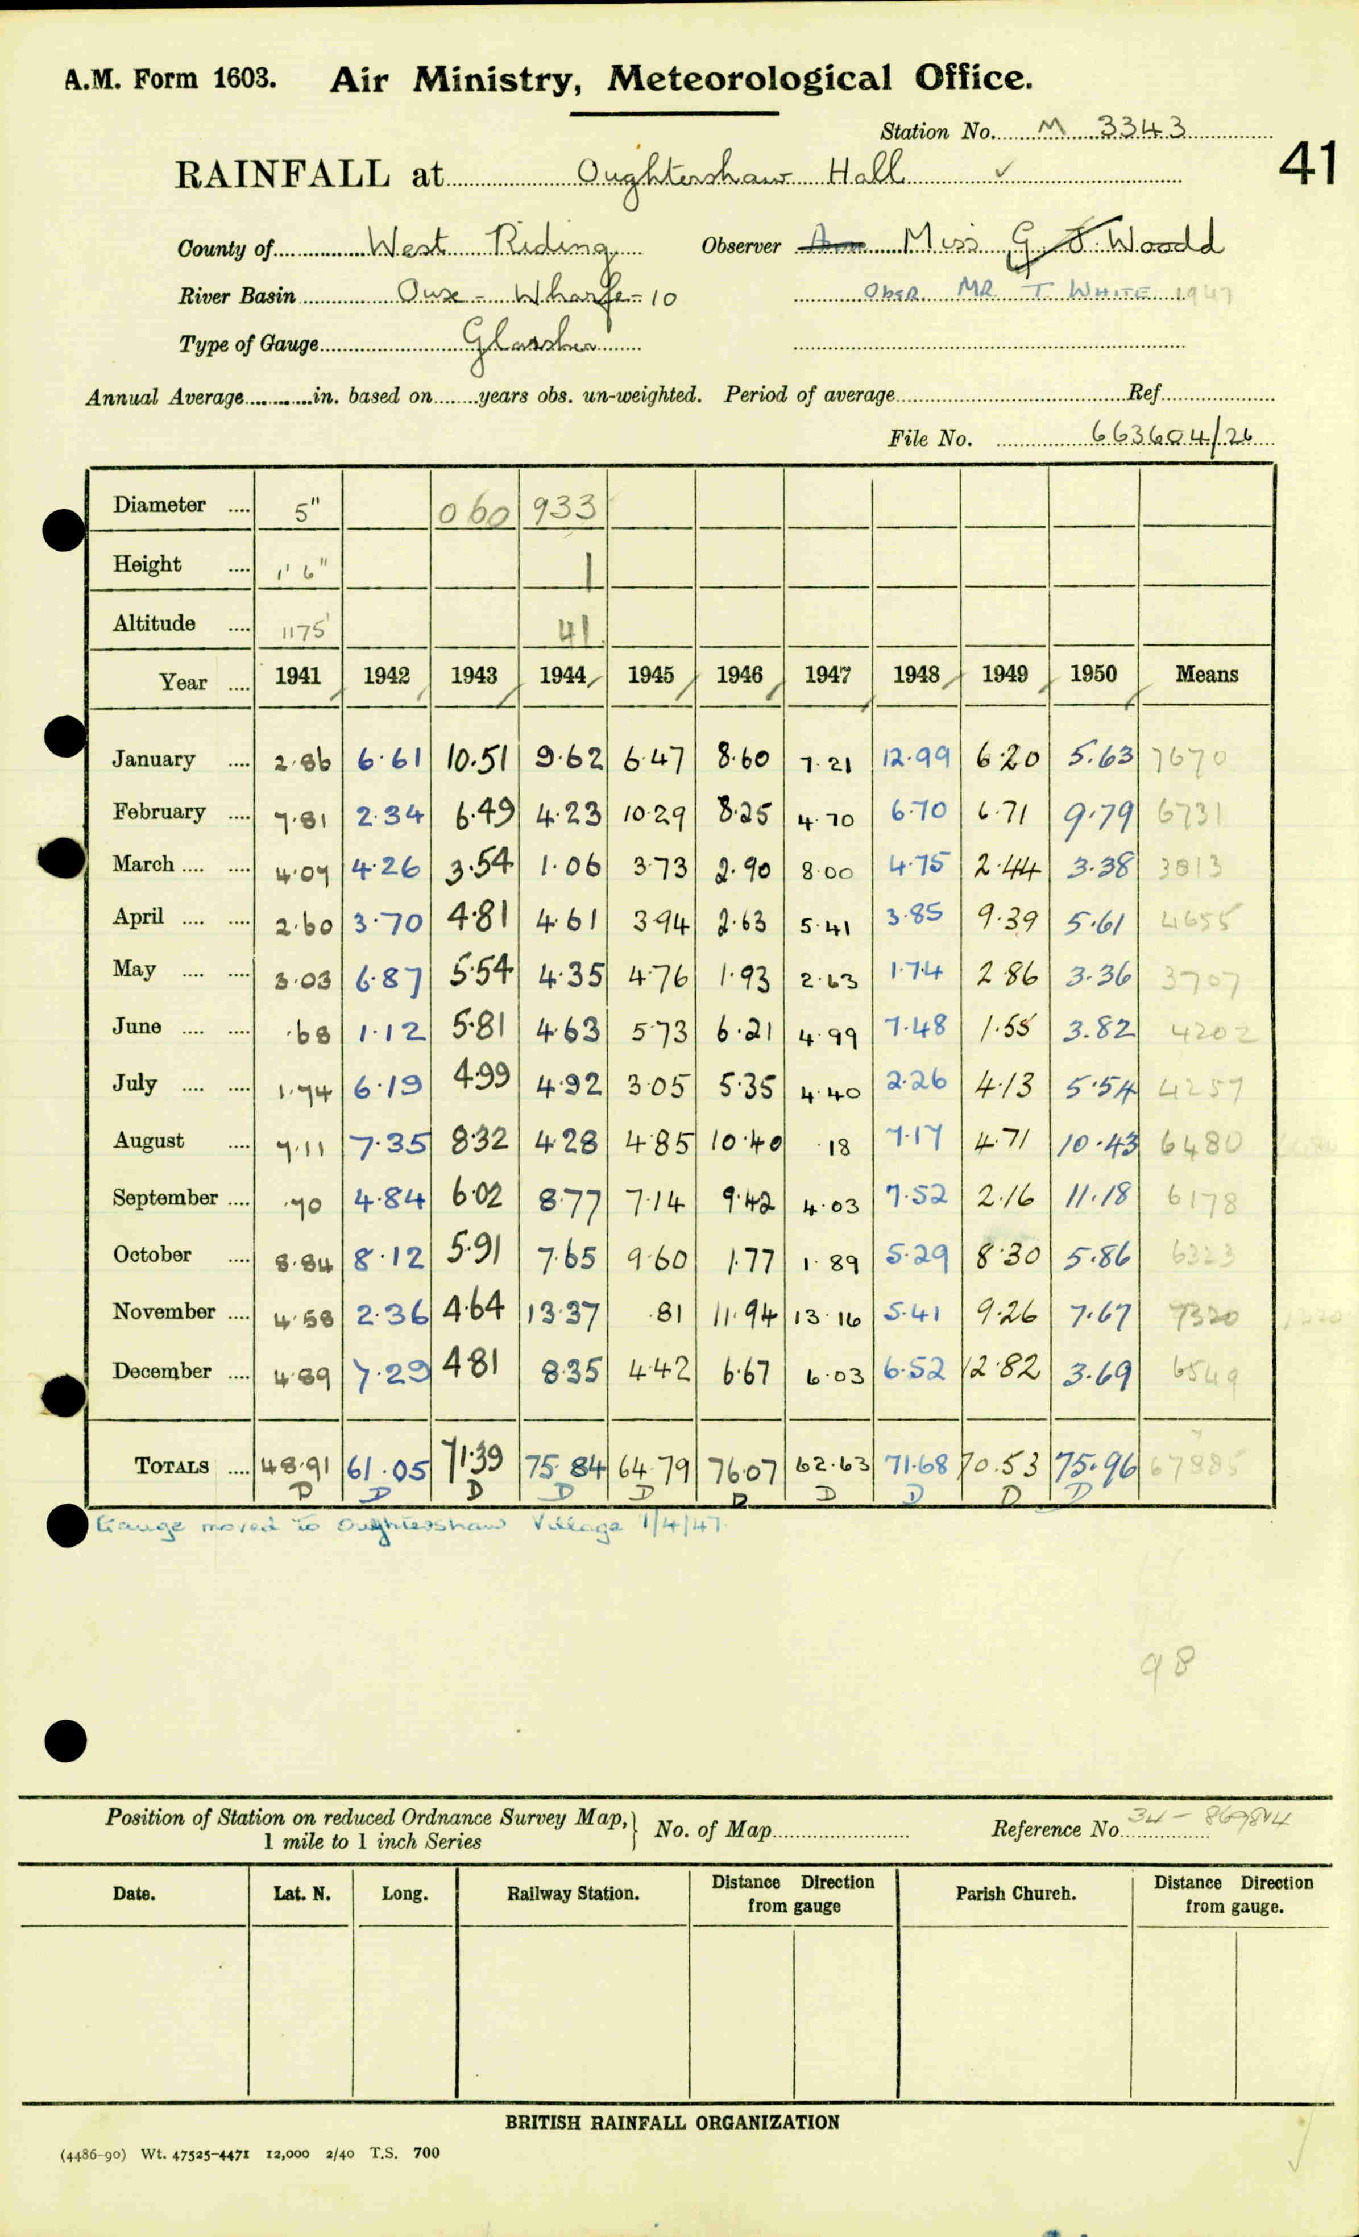 A.M. Form 1603. Air Ministry, Meteorological Office.
Station No. M 3343
41
RAINFALL at Oughtershaw Hall ✓
County of West Riding Observer Miss G. J. Woodd
River Basin Ouse - Wharfe - 10 Obsr. MR T. WHITE 1947
Type of Gauge Glaisher
Annual Average in. based on years obs. un-weighted. Period of average Ref.
File No. 663604/26
Diameter 5" 060 933
Height 1' 6" 1
Altitude 1175' 41
Year 1941 1942 1943 1944 1945 1946 1947 1948 1949 1950 Means
January 2.86 6.61 10.51 9.62 6.47 8.60 7.21 12.99 6.20 5.63 7670
February 7.81 2.34 6.49 4.23 10.29 8.25 4.70 6.70 6.71 9.79 6731
March 4.07 4.26 3.54 1.06 3.73 2.90 8.00 4.75 2.44 3.38 3813
April 2.60 3.70 4.81 4.61 3.94 2.63 5.41 3.85 9.39 5.61 4655
May 3.03 6.87 5.54 4.35 4.76 1.93 2.63 1.74 2.86 3.36 3707
June .68 1.12 5.81 4.63 5.73 6.21 4.99 7.48 1.55 3.82 4202
July 1.74 6.19 4.99 4.92 3.05 5.35 4.40 2.26 4.13 5.54 4257
August 7.11 7.35 8.32 4.28 4.85 10.40 .18 7.17 4.71 10.43 6480
September .70 4.84 6.02 8.77 7.14 9.42 4.03 7.52 2.16 11.18 6178
October 8.84 8.12 5.91 7.65 9.60 1.77 1.89 5.29 8.30 5.86 6323
November 4.58 2.36 4.64 13.37 .81 11.94 13.16 5.41 9.26 7.67 7320
December 4.89 7.29 4.81 8.35 4.42 6.67 6.03 6.52 12.82 3.69 6549
TOTALS 48.91 61.05 71.39 75.84 64.79 76.07 62.63 71.68 70.53 75.96 67885
D D D D D D D D D D
Gauge moved to Oughtershaw Village 1/4/47.
98
Position of Station on reduced Ordnance Survey Map, 1 mile to 1 inch Series } No. of Map Reference No. 34 -
Date. Lat. N. Long. Railway Station. Distance Direction from gauge Parish Church. Distance Direction from gauge.
BRITISH RAINFALL ORGANIZATION
(4486-90) Wt. 47525-4471 12,000 2/40 T.S. 700